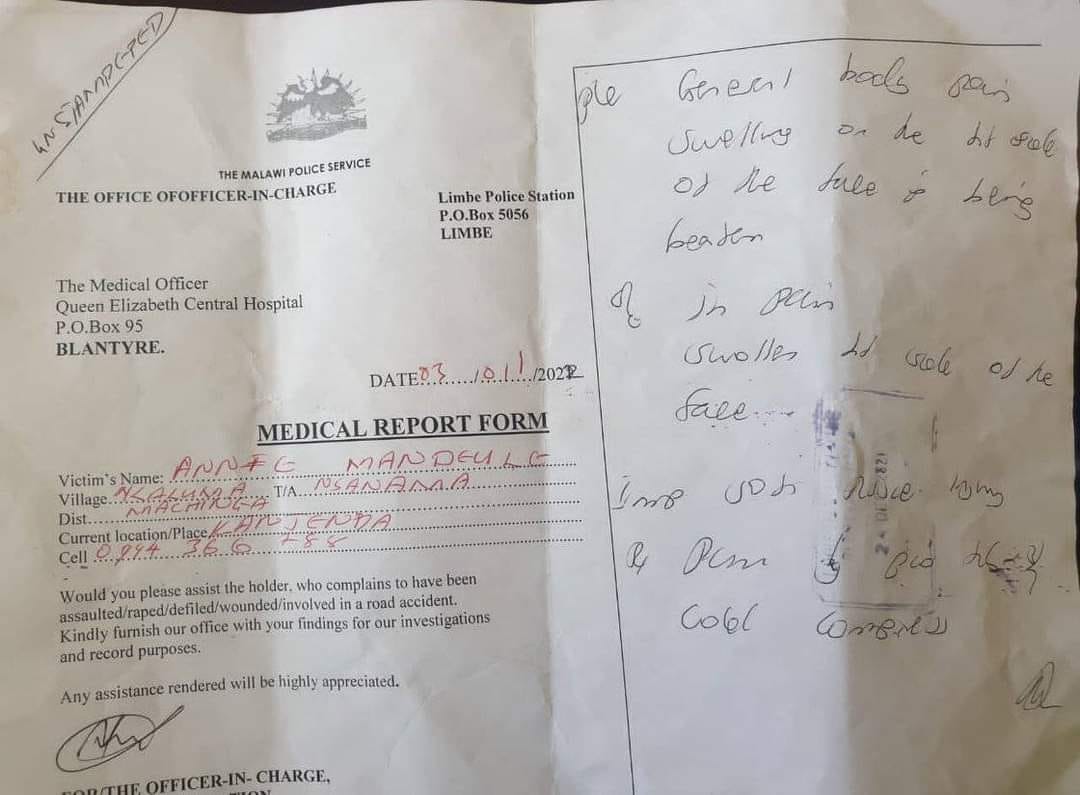 THE MALAWI POLICE SERVICE
THE OFFICE OFOFFICER-IN-CHARGE
Limbe Police Station
P.O.Box 5056
LIMBE
The Medical Officer
Queen Elizabeth Central Hospital
P.O.Box 95
BLANTYRE.
DATE 03/01/2022
MEDICAL REPORT FORM
Victim's Name: ANNIE MANDEULE
Village T/A NSANAMA
Dist. MACHINGA
Current location/Place KANJEDA
Cell
Would you please assist the holder, who complains to have been
assaulted/raped/defiled/wounded/involved in a road accident.
Kindly furnish our office with your findings for our investigations
and record purposes.
Any assistance rendered will be highly appreciated.
FOR/THE OFFICER-IN- CHARGE,
General body pain
swelling on the side
of the face being
beaten
in pain
swollen side of the
face
Imp soft tissue injury
Cold compress